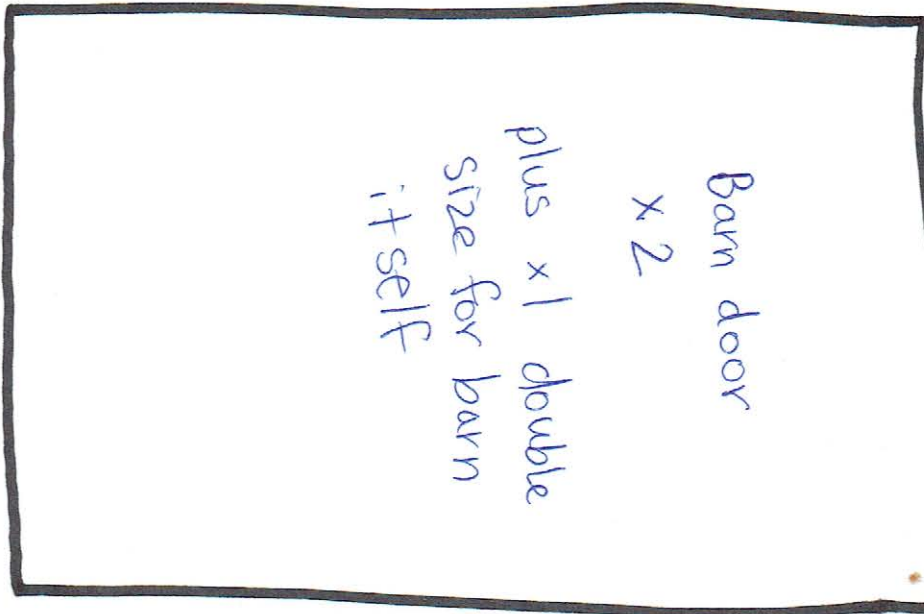 Barn door
x 2
plus x1 double
size for barn
itself